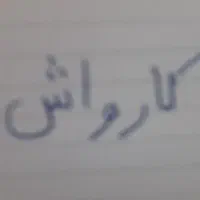 کارواش